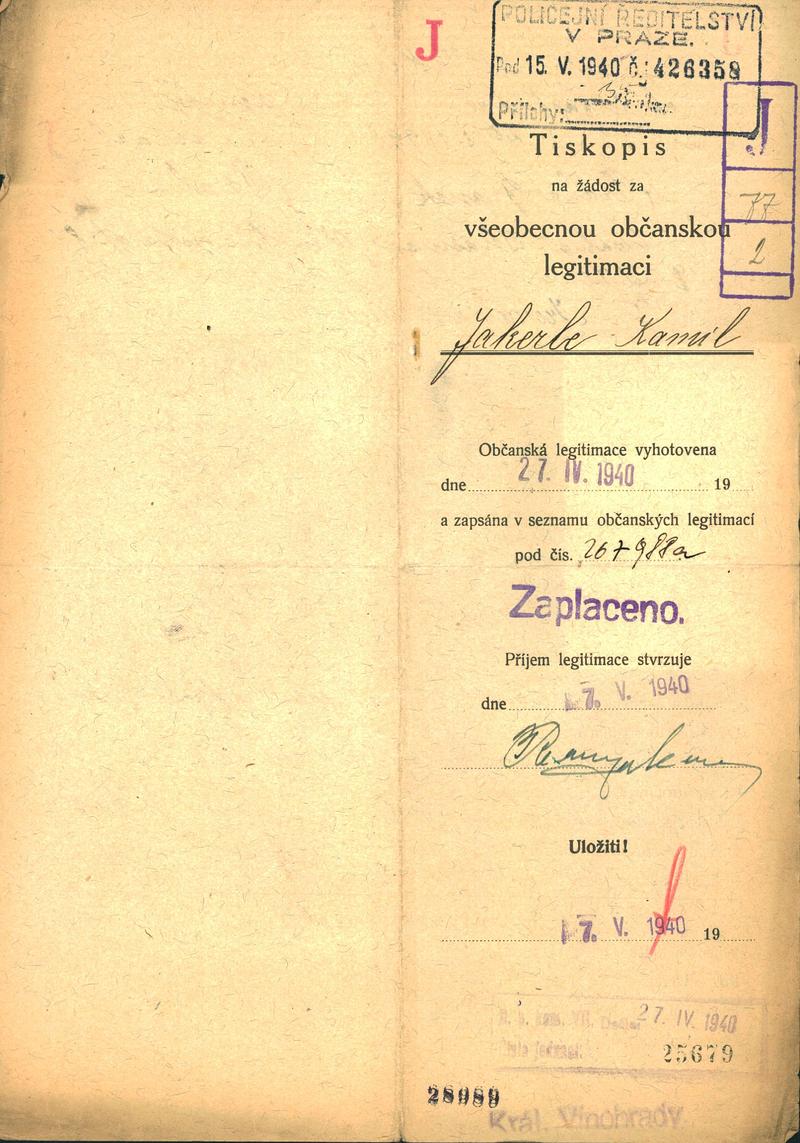 J
POLICEJNÍ ŘEDITELSTVÍ
V PRAZE.
Pod 15. V. 1940 č. 426358
Přílohy:
J
77
2
Tiskopis
na žádost za
všeobecnou občanskou
legitimaci
Jakerle Kamil
Občanská legitimace vyhotovena
dne 27. IV. 1940 19
a zapsána v seznamu občanských legitimací
pod čís. 267988a
Zaplaceno.
Příjem legitimace stvrzuje
dne 17. V. 1940
Uložiti!
17. V. 1940 19
27. IV. 1940
25679
28989
Král. Vinohrady